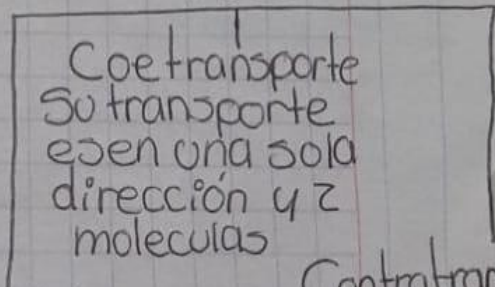 Coetransporte
Su transporte
es en una sola
dirección y 2
moleculas